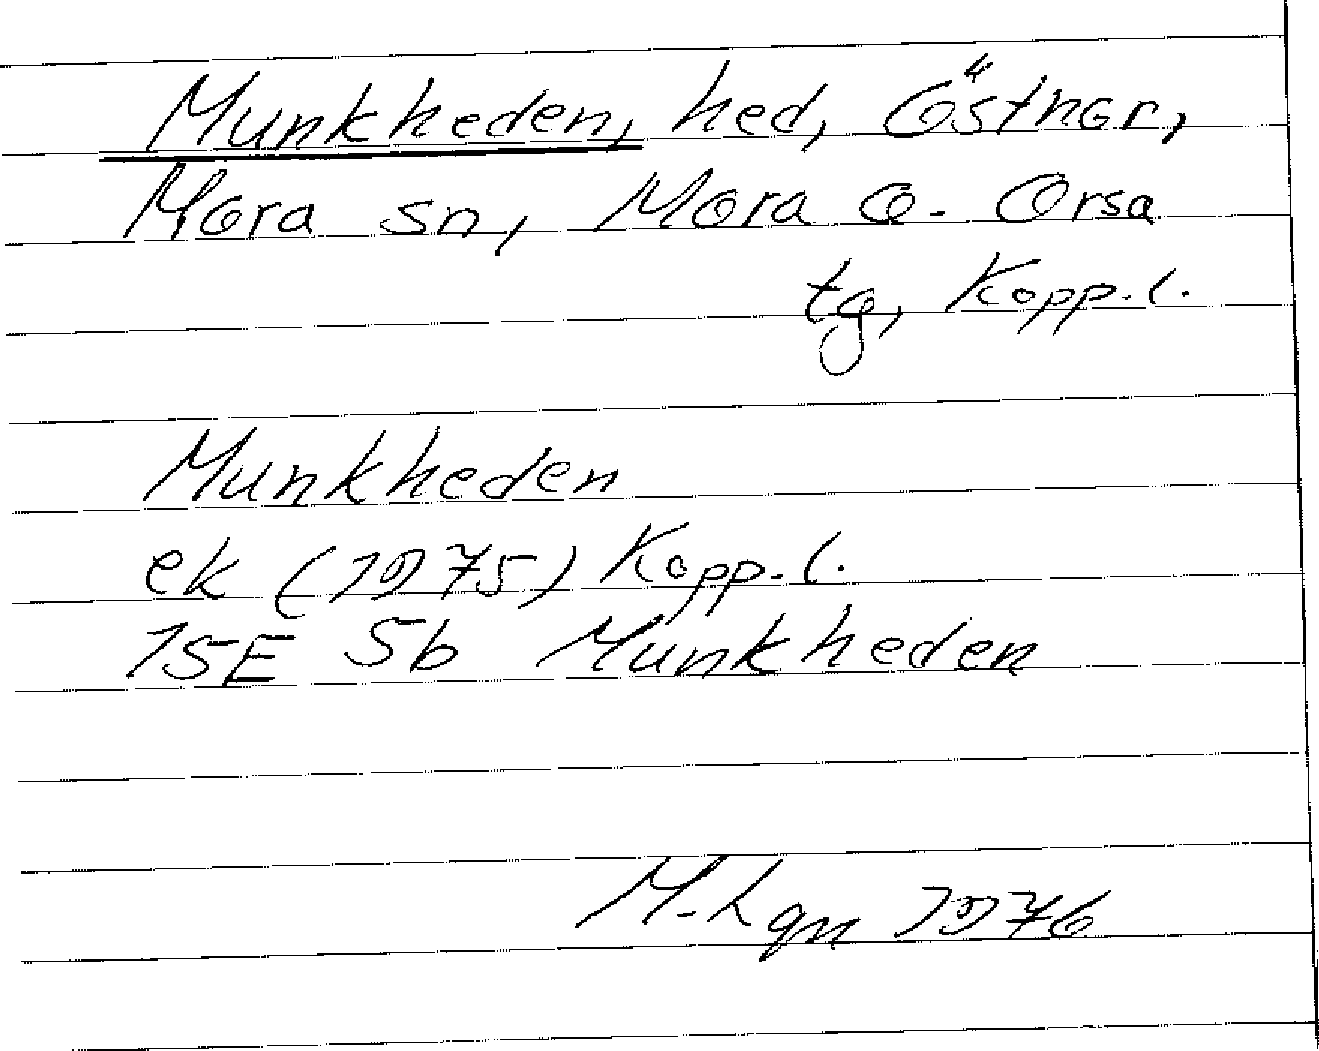 Munkheden, hed, Östnor,
Mora sn, Mora o. Orsa
tg, Kopp.l.
Munkheden
ek (1975) Kopp.l.
15E 5b Munkheden
M. Lgn 1976